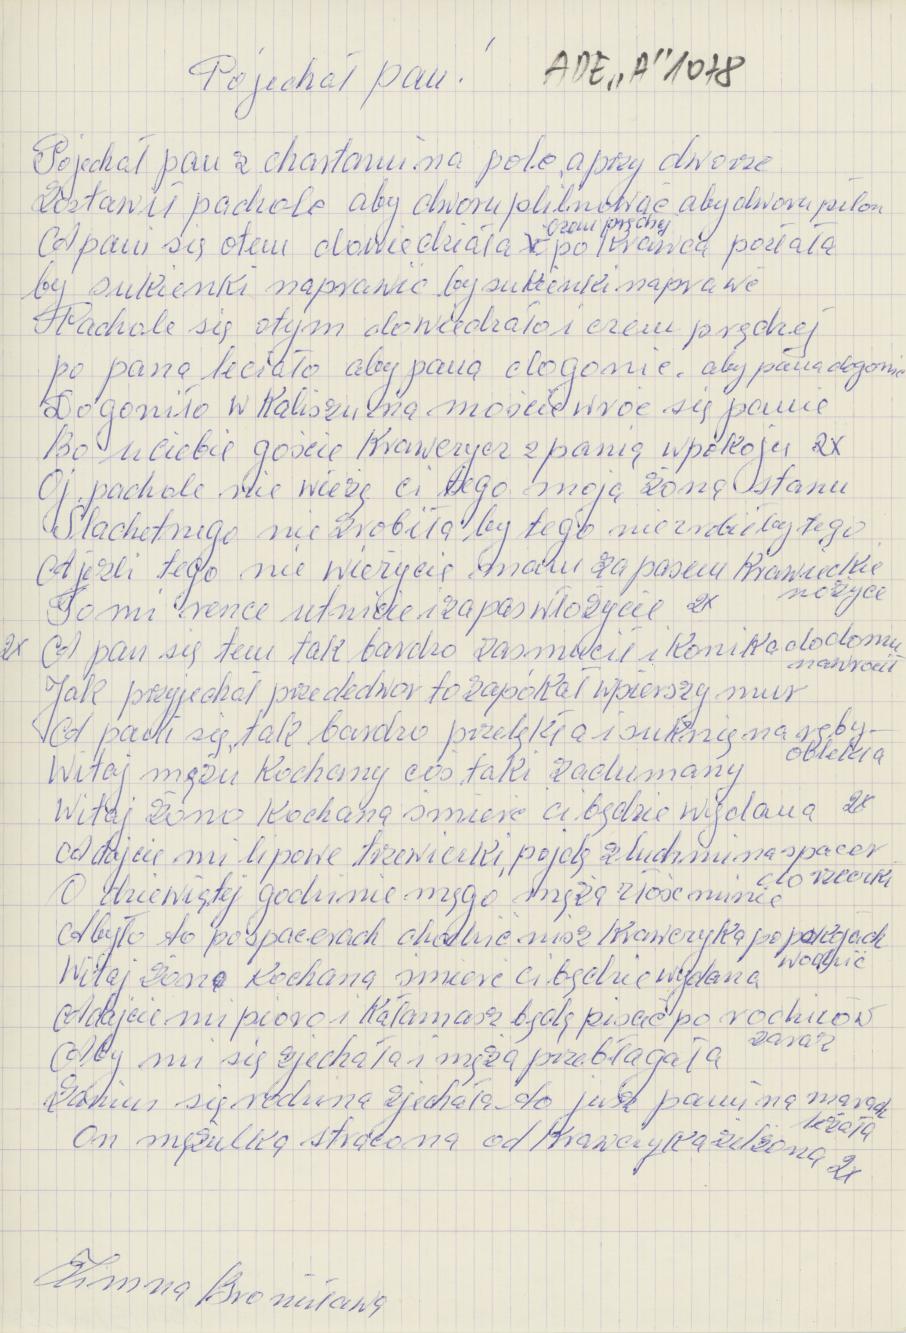 Pojechał pan! ADE „A" 1078
Pojechał pan z chartami na pole, a przy dworze
Zostawił pachole aby dworu pilnować aby dworu pilon
A pani się otem dowiedziała czem prędzej po Krawca posłała
by sukienki naprawić by sukienki naprawić
Pachole się otym dowiedziało i czem prędzej
po pana leciało aby pana dogonić. aby pana dogonić
Dogoniło w Kaliszu na moście wróć się panie
Bo u ciebie goście Krawczycz z panią w pokoju 2x
Oj pachole nie wieżę ci tego moja żona stanu
Slachetnego nie zrobiła by tego nie zrobiłby tego
A jeżli tego nie wieżycie mam za pasem Krawieckie nożyce
To mi rence utnicie i za pas włożycie 2x
2x A pan się tem tak bardzo zasmucił i Konika do domu nawrócił
Jak przyjechał przededwor to zapókał w pierszy mur
A pani się tak bardzo przelękła i suknię na ręby oblekła
Witaj mężu Kochany coś taki zadumany
Witaj żono Kochana śmierć ci będzie wydana 2x
A dajcie mi lipowe trzewiczki, pojdę z ludzmi na spacer do rzeczki
O dziewiątej godzinie mego męża złość minie
A było to po spacerach chodzić nisz Krawczyka po pokojach wodzić
Witaj żono Kochana śmierć ci będzie wydana
A dajcie mi pioro i Kałamasz będę pisać po rodziców zaraz
Aby mi się zjechała i męża przebłagała
Zanim się rodzina zjechała to jusz pani na marach leżała
On mężulka stracona od Krawczyka zelżona 2x
Zimna Bronisława